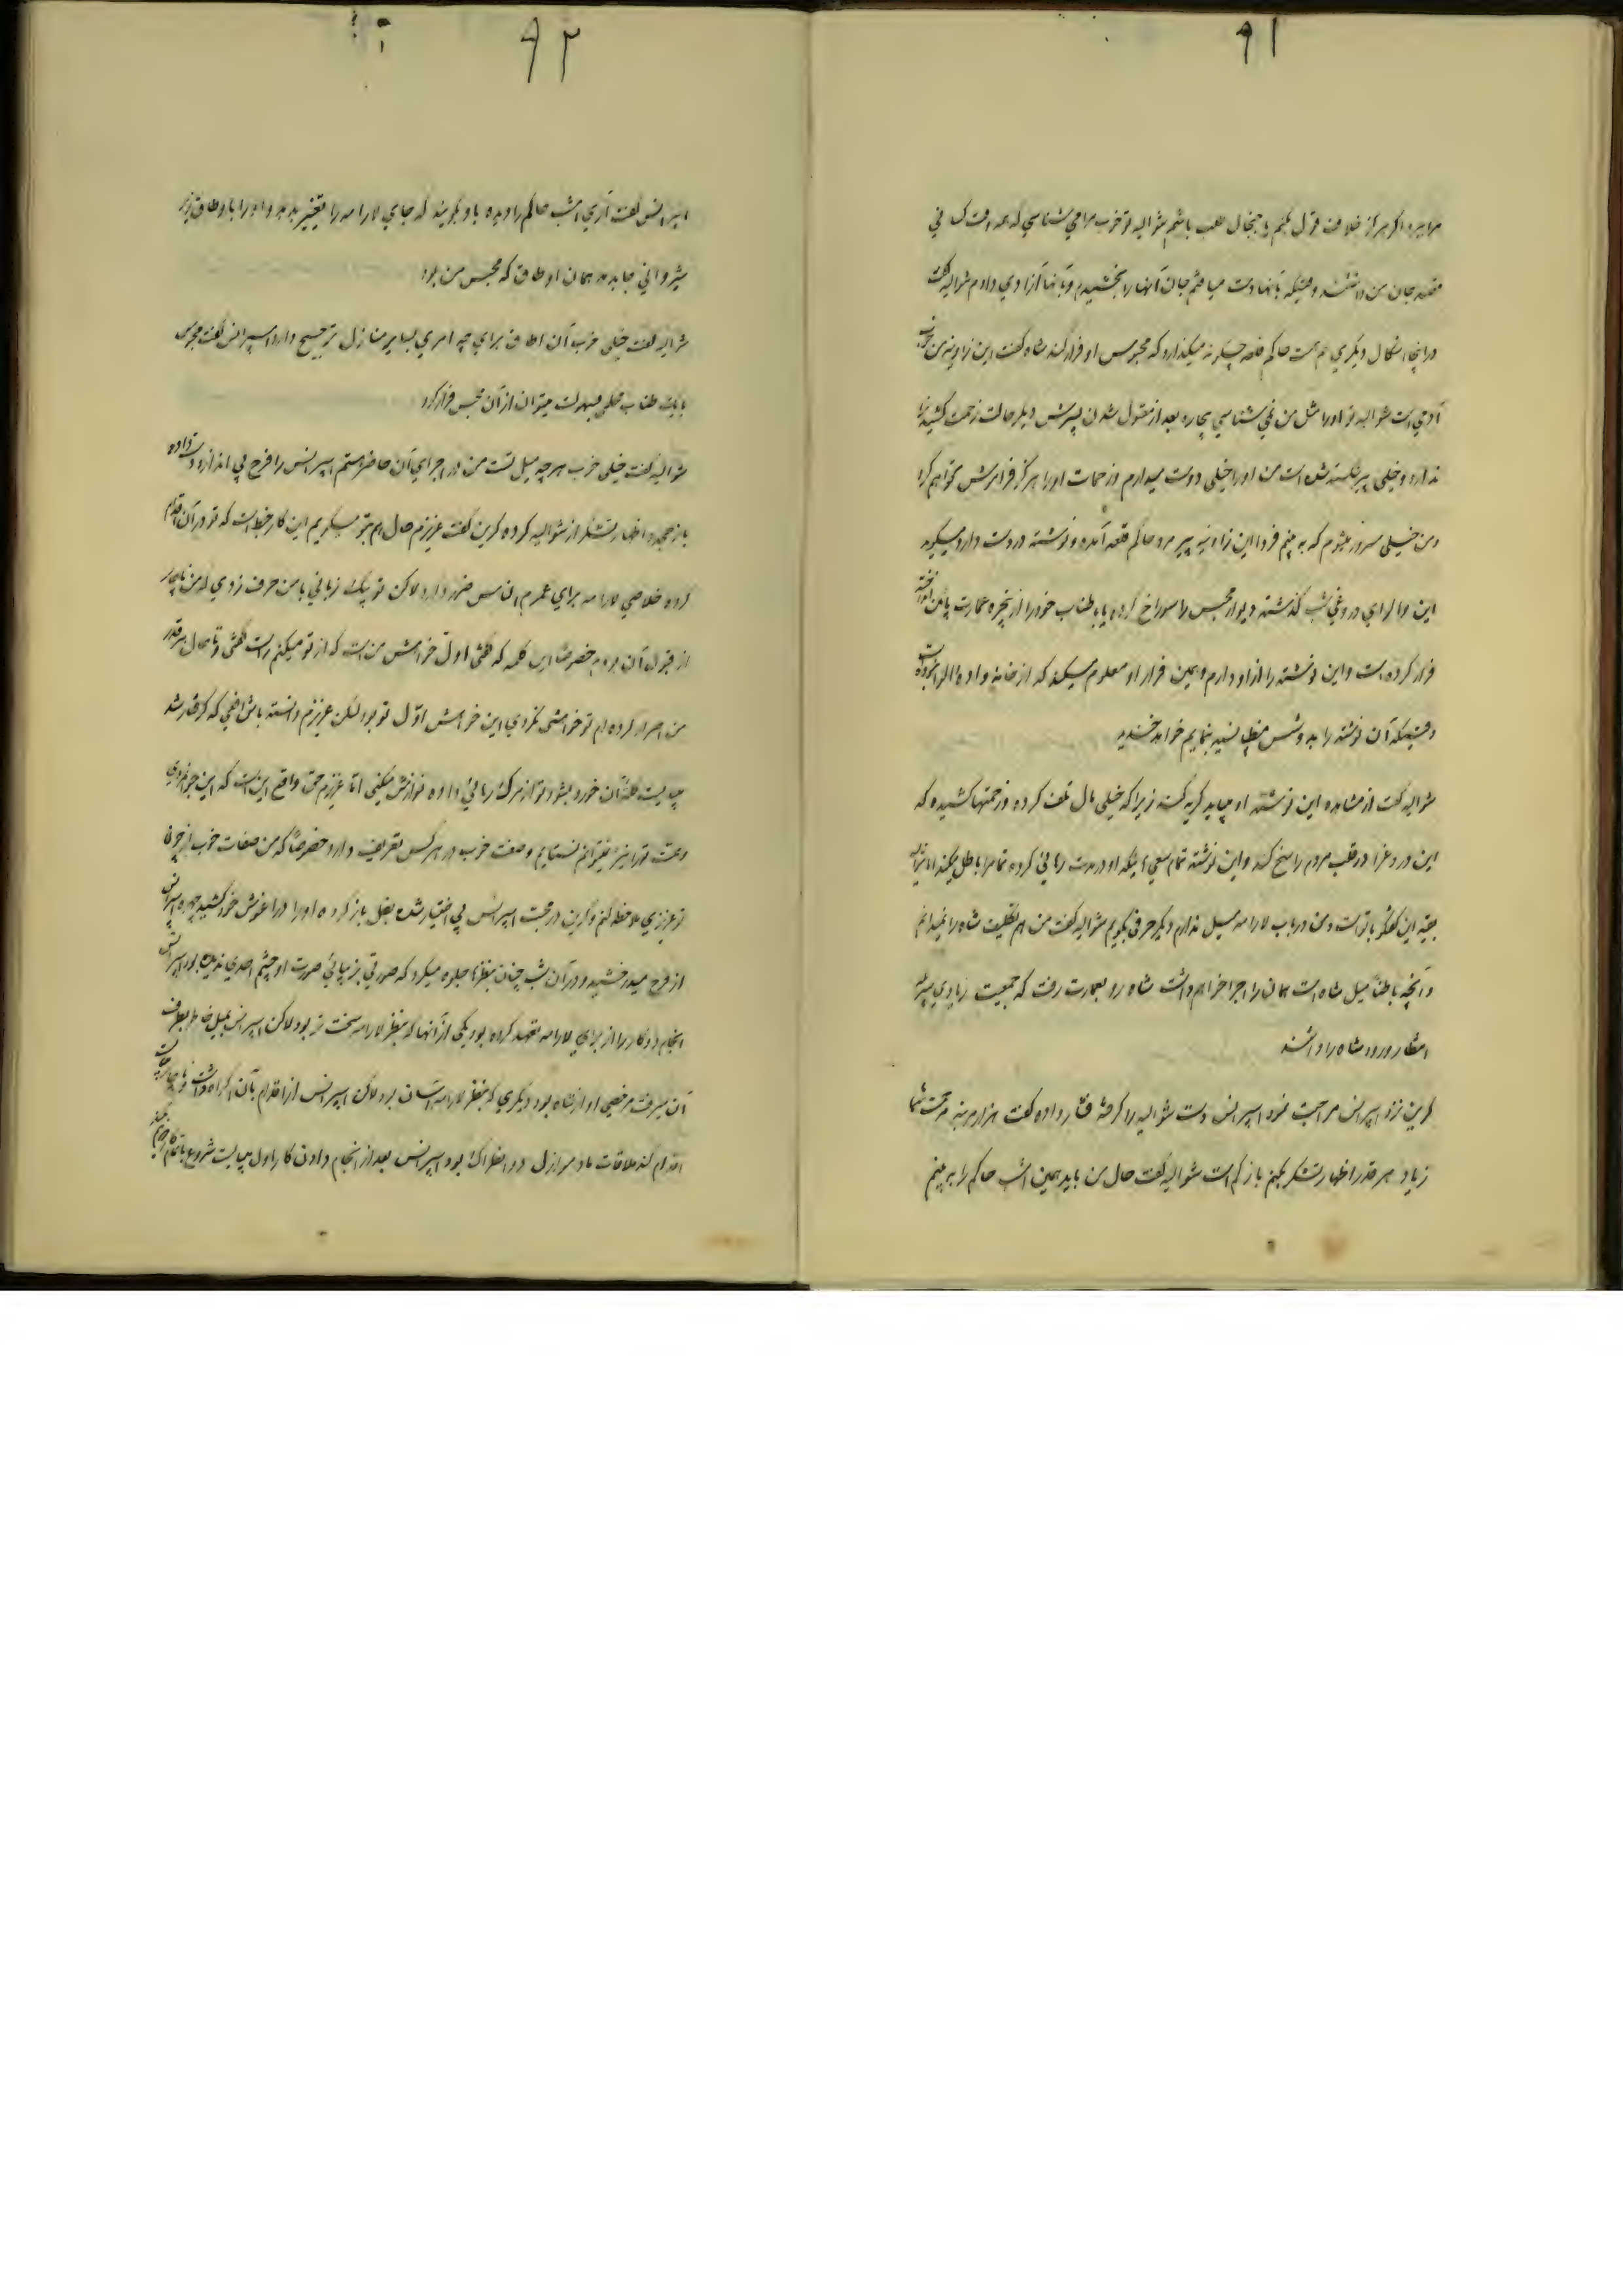 ۹۱
مرا ببرد اگر هرگز خلاف قول بکنم یا جنجال طلب باشم شوالیه تو خوب مرا می شناسی که همه وقت
قصد جان من داشتند وقتیکه بآنها دست میافتم جان آنها را بخشیدم و بآنها آزادی دادم شوالیه گفت
در اینجا اشکال دیگری هم هست حاکم قلعه چگونه میگذارد که محبوس او فرار کند شاه گفت این
آدمی است شوالیه تو او را مثل من نمی شناسی بیچاره بعد از مقتول شدن پسرش دیگر حالت زحمت کشیدن
ندارد و خیلی پیر شکسته شده است من او را خیلی دوست میدارم و زحمات او را هرگز فراموش نخواهم کرد
و من خیلی مسرور میشوم که به بینم فردا این پیر مرد حاکم قلعه آمده و نوشته در دست دارد میگوید
این والرای دروغی شب گذشته دیوار محبس را سوراخ کرده یا با طناب خود را از پنجره عمارت پائین انداخته
فرار کرده است و این نوشته را از او دارم و همین فرار او معلوم میکند که از خانواده والرا نبوده است
وقتیکه آن نوشته را به دوشس بنمایم خواهد خندید
شوالیه گفت از مشاهده این نوشته او میباید گریه کند زیرا که خیلی مال تلف کرده و زحمتها کشیده که
این دروغ را در قلب مردم راسخ کند و این نوشته تمام سعی اینکه او در مدت زمانی کرده تماما باطل میکند
بقیه این گفتگو با تو است و من در باب لارامه میل ندارم دیگر حرفی بگویم شوالیه گفت من هم تکلیف شاه را نمیدانم
و آنچه باطناً میل شاه است همان را اجرا خواهم داشت شاه رو بعمارت رفت که جمعیت زیادی
انتظار ورود شاه را داشتند
کرین نزد اسپرانس مراجعت نمود اسپرانس دست شوالیه را گرفته فشار داده گفت هزار مرتبه مرحمت شما
زیاد هر قدر اظهار تشکر بکنم باز کم است شوالیه گفت حال من باید همین امشب حاکم را به بینم
۹۲
اسپرانس گفت آری امشب حاکم را دیده باو بگویند که جای لارامه را تغییر بدهد و او را باوطاق
شیروانی جا بدهد همان اوطاق که محبس من بود
شوالیه گفت خیلی خوب آن اطاق برای چه امری بسایر منازل ترجیح دارد اسپرانس گفت
با یک طناب خیلی بسهولت میتوان از آن محبس فرار کرد
شوالیه گفت خیلی خوب هر چه میل تست من در اجرای آن حاضر هستم اسپرانس را فرح بی اندازه دست داده
باز مجدداً اظهار تشکر از شوالیه کرده کرین گفت عزیزم حال هم بتو میگویم این کار خبط است که تو در آن اقدام
کرده خلاصی لارامه برای عموم ناس ضرر دارد لاکن تو بیک زبانی با من حرف زدی که من ناچار
از قبول آن بودم خصوصاً این کلمه که گفتی اول خواهش من است که از تو میکنم راست گفتی و تا بحال هر قدر
من اصرار کرده ام تو خواهشی نکردی این خواهش اول تو بود لیکن عزیزم دانسته باش که گرفتار شد
میبایست کله آن خورد بشود تو از مرگ رهائی داده نوازش میکنی اما عزیزم حق واقع این است که این جوانمردی
و همت تو را نیز نمیتوانم نستایم وصف خوب در هر کس تعریف دارد خصوصاً که من صفات خوب از چون
تو عزیزی ملاحظه کنم و کرین در محبت اسپرانس بی اختیار شده بغل باز کرده او را در آغوش خود کشید چهره اسپرانس
از فرح میدرخشید و در آن شب چنان بنظرها جلوه میکرد که صورتی بزیبائی صورت او چشم احدی ندیده بود اسپرانس
انجام دو کار را از برای لارامه تعهد کرده بود یکی از آنها که بنظر لارامه سخت تر بود لاکن اسپرانس بمیل خاطر بطرف
آن میرفت مرخصی او از شاه بود دیگری که بنظر لارامه آسان بود لاکن اسپرانس از اقدام بآن اکراه داشت
اقدام کند ملاقات مادموازل دو انطراگ بود اسپرانس بعد از انجام دادن کار اول میبایست شروع